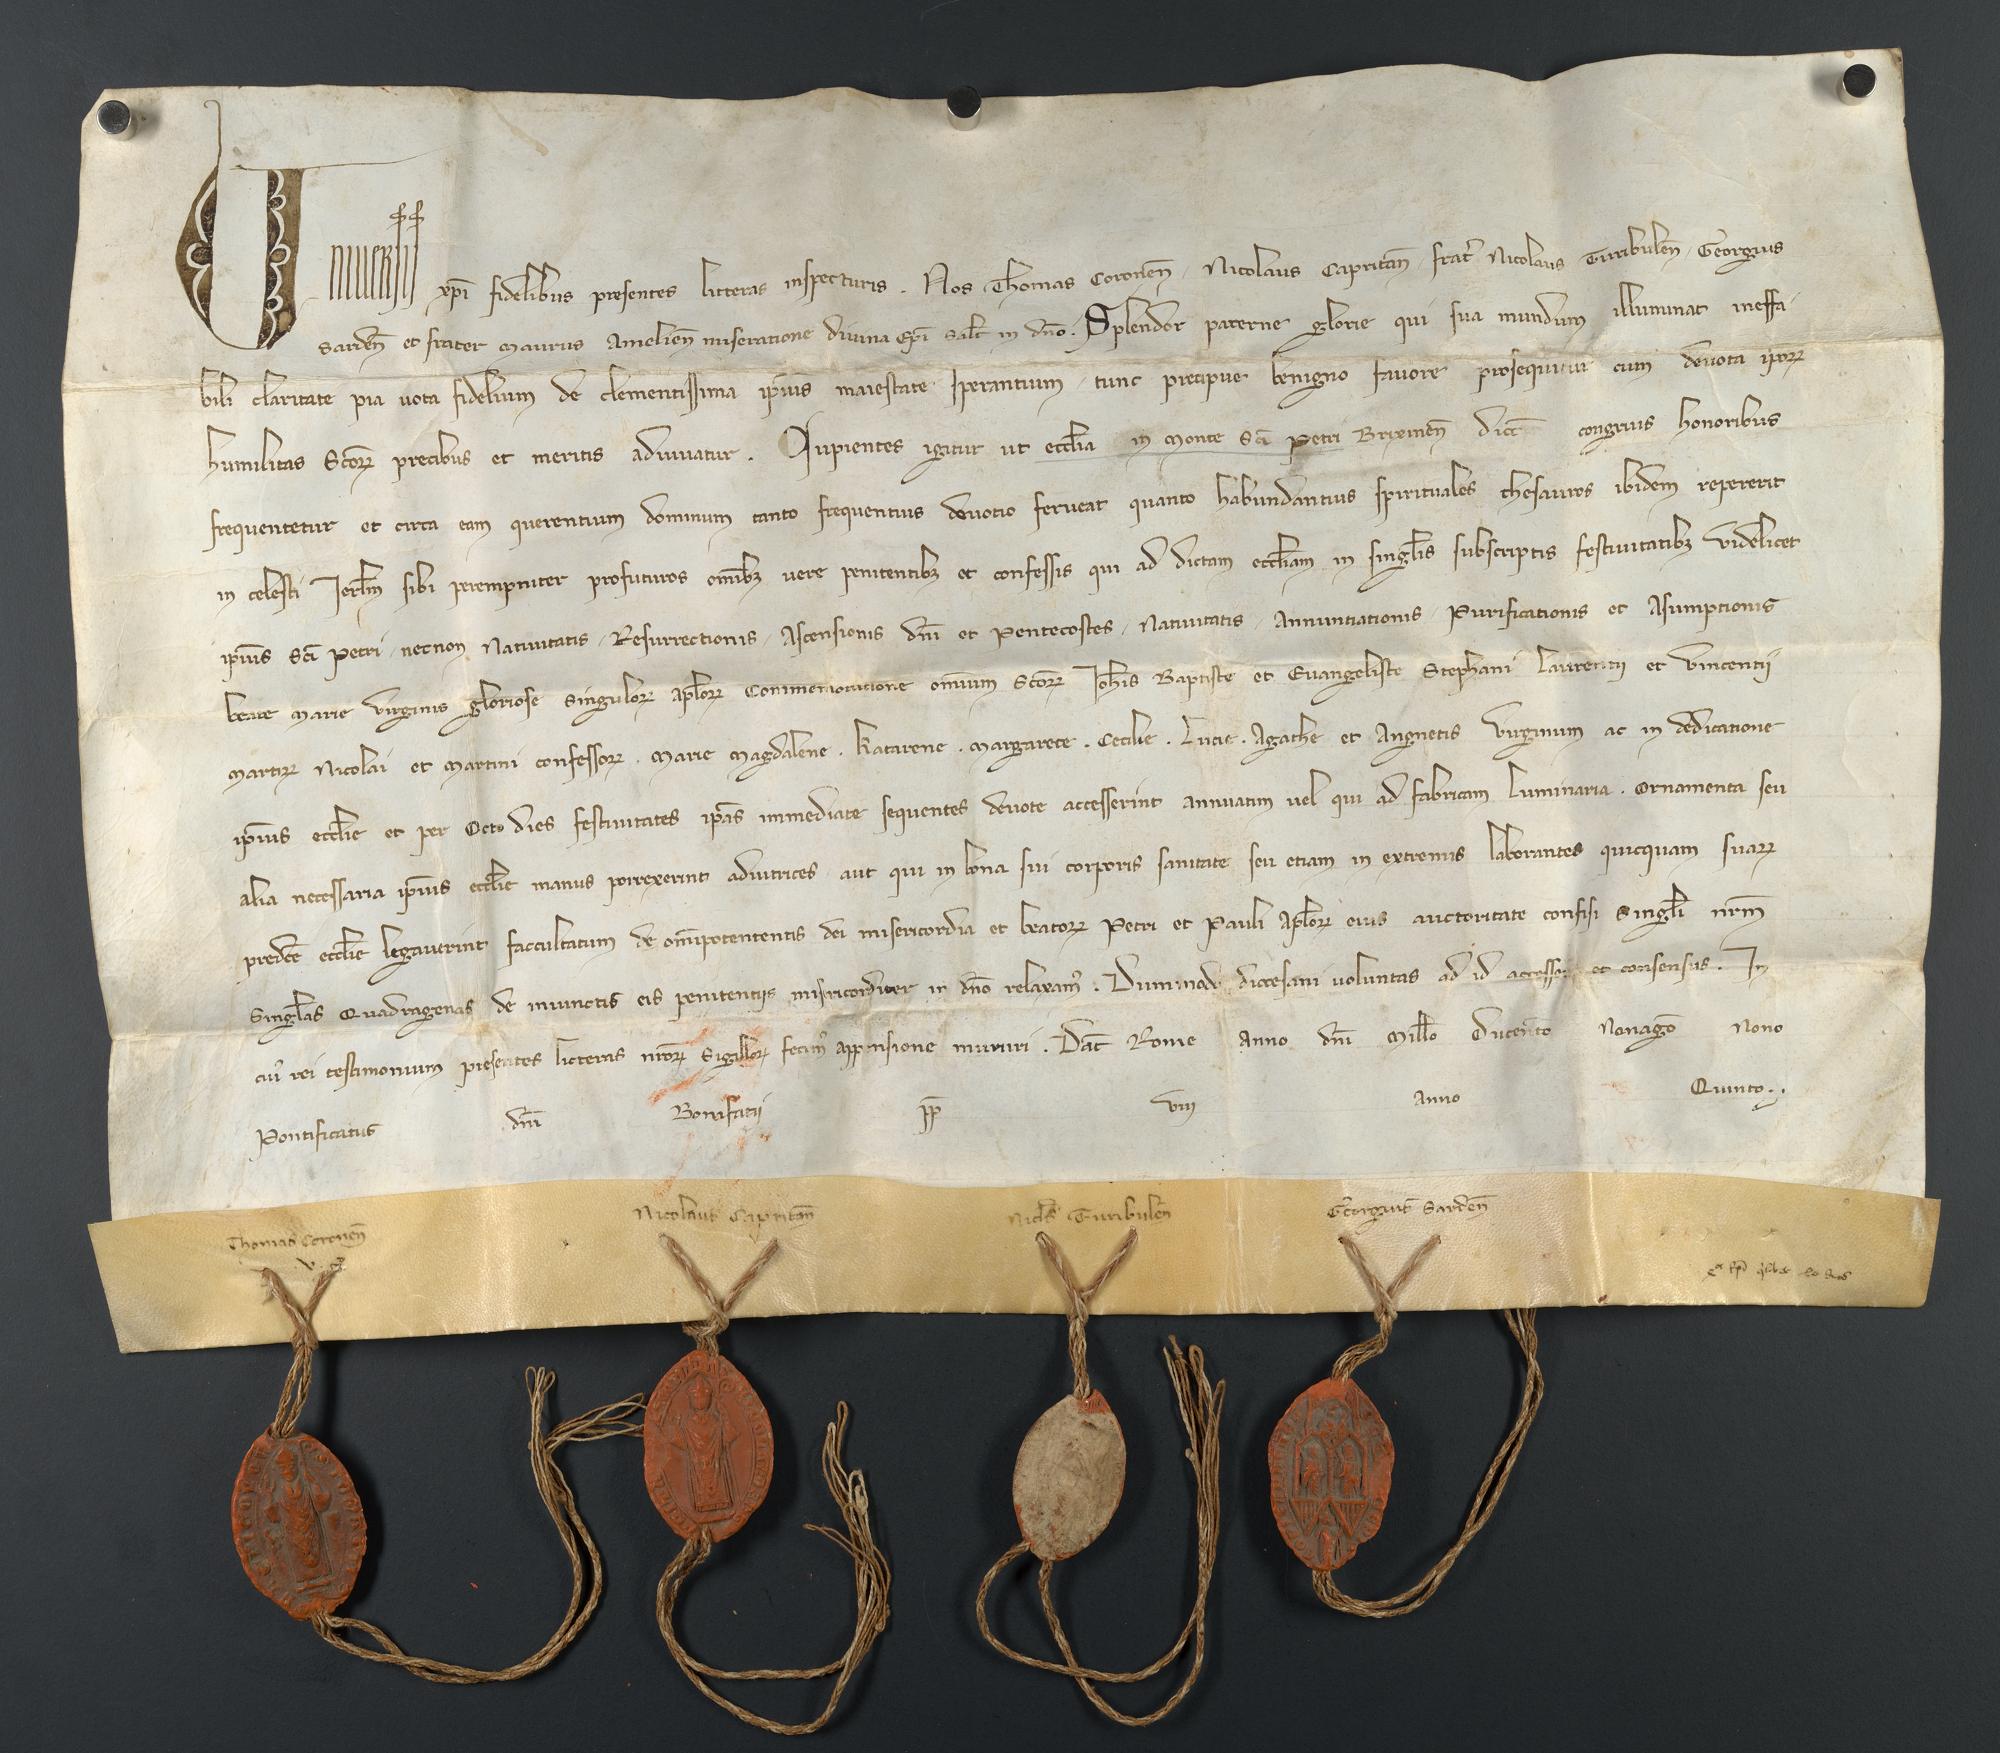 Universis xpi fidelibus presentes litteras inspecturis. Nos Thomas Coronen̄. Nicolaus Capritan̄. frat̉ Nicolaus Turibulen̄. Georgius
Sarden̄ et frater Maurus Amelien̄ miseratione diuina Ep̄i sal̄t in dn̄o. Splendor paterne glorie qui sua mundum illuminat ineffa
bili claritate pia uota fidelium de clementissima ip̄ius maiestate sperantium. tunc precipue benigno fauore prosequitur cum deuota ip̄oꝝ
humilitas Sc̄oꝝ precibus et meritis adiuuatur. Cupientes igitur ut eccl̄ia in Monte Sc̄i Petri Brixinen̄ dioc̄ congruis honoribus
frequentetur et circa eam querentium dominum tanto frequentius deuotio ferueat quanto habundantius spirituales thesauros ibidem repererit
in celesti Ierl̄m sibi perempniter profuturos om̄ibꝫ uere penitentibꝫ et confessis qui ad dictam eccl̄iam in singl̄is subscriptis festiuitatibꝫ videlicet
ip̄ius Sc̄i Petri. necnon Natiuitatis. Resurrectionis. Ascensionis dn̄i et Pentecostes. Natiuitatis. Annuntiationis. Purificationis et Asumptionis
beate Marie Virginis gloriose singuloꝝ Ap̄loꝝ Commemoratione om̄ium Sc̄oꝝ Ioh̄is Baptiste et Euangeliste Stephani Laurentij et Vincentij
martiꝝ Nicolai et Martini confessoꝝ. Marie Magdalene. Katerene. Margarete. Cecilie. Lucie. Agathe et Angnetis Virginum ac in dedicatione
ip̄ius eccl̄ie et per octo dies festiuitates ip̄as immediate sequentes deuote accesserint annuatim uel qui ad fabricam Luminaria. Ornamenta seu
alia necessaria ip̄ius eccl̄ie manus porrexerint adiutrices. aut qui in bona sui corporis sanitate seu etiam in extremis laborantes quicquam suaꝝ
predc̄e eccl̄ie legauerint faccultatum de om̄ipotententis dei misericordia et beatoꝝ Petri et Pauli Ap̄loꝝ eius auctoritate confisi Singl̄i nr̄m
Singl̄as Quadragenas de iniunctis eis penitentijs misericorditer in dn̄o relaxam̉. Dummodo diocesani uoluntas ad id accesserit et consensus. In
cuỉ rei testimonium presentes litteras nr̄oꝝ Sigilloꝝ fecim̉ appensione muniri. Dat̄ Rome Anno dn̄i Mill̄o Ducento Nonago Nono
Pontificatus dn̄i Bonifatij pp̄ viij Anno Quinto.
Thomas Coronen̄
Nicolaus Capritan̄
Nicl̄s Turibulen̄
Georgius Sarden̄